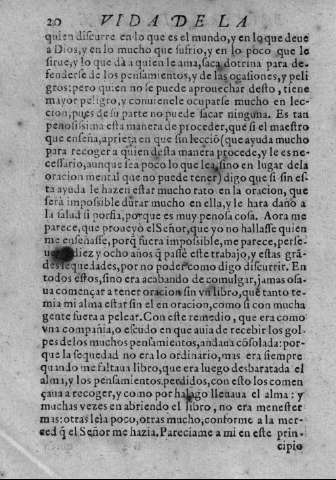 20 VIDA DE LA
quien discurre en lo que es el mundo, y en lo que deue
a Dios, y en lo mucho que sufrio, y en lo poco que le
sirue, y lo que dà a quien le ama, saca dotrina para de-
fenderse de los pensamientos, y de las ocasiones, y peli
gros: pero quien no se puede aprouechar desto, tiene
mayor peligro, y conuienele ocuparse mucho en lec-
cion, pues de su parte no puede sacar ninguna. Es tan
penosissima esta manera de proceder, que si el maestro
que enseña, aprieta en que sin lecciõ (que ayuda mucho
para recoger a quien desta manera procede, y le es ne-
cessario, aunque sea poco lo que lea, sino en lugar dela
oracion mental que no puede tener) digo que si sin es-
ta ayuda le hazen estar mucho rato en la oracion, que
serà impossible durar mucho en ella, y le hara daño a
la salud si porfia, porque es muy penosa cosa. Aora me
parece, que proueyò el Señor, que yo no hallasse quien
me enseñasse, porq̃ fuera impossible, me parece, perse-
diez y ocho años q̃ passè este trabajo, y estas grã-
des sequedades, por no poder como digo discurrir. En
todos estos, sino era acabando de comulgar, jamas osa-
ua començar a tener oracion sin vn libro, que tanto te-
mia mi alma estar sin el en oracion, como si con mucha
gente fuera a pelear. Con este remedio, que era como
vna compañia, o escudo en que auia de recebir los gol-
pes de los muchos pensamientos, andaua cõsolada: por-
que la sequedad no era lo ordinario, mas era siempre
quando me faltaua libro, que era luego desbaratada el
alma, y los pensamientos perdidos, con esto los comen
çaua a recoger, y como por halago lleuaua el alma: y
muchas vezes en abriendo el libro, no era menester
mas: otras leîa poco, otras mucho, conforme a la mer-
ced q̃ el Señor me hazia. Pareciame a mi en este prin-
cipio